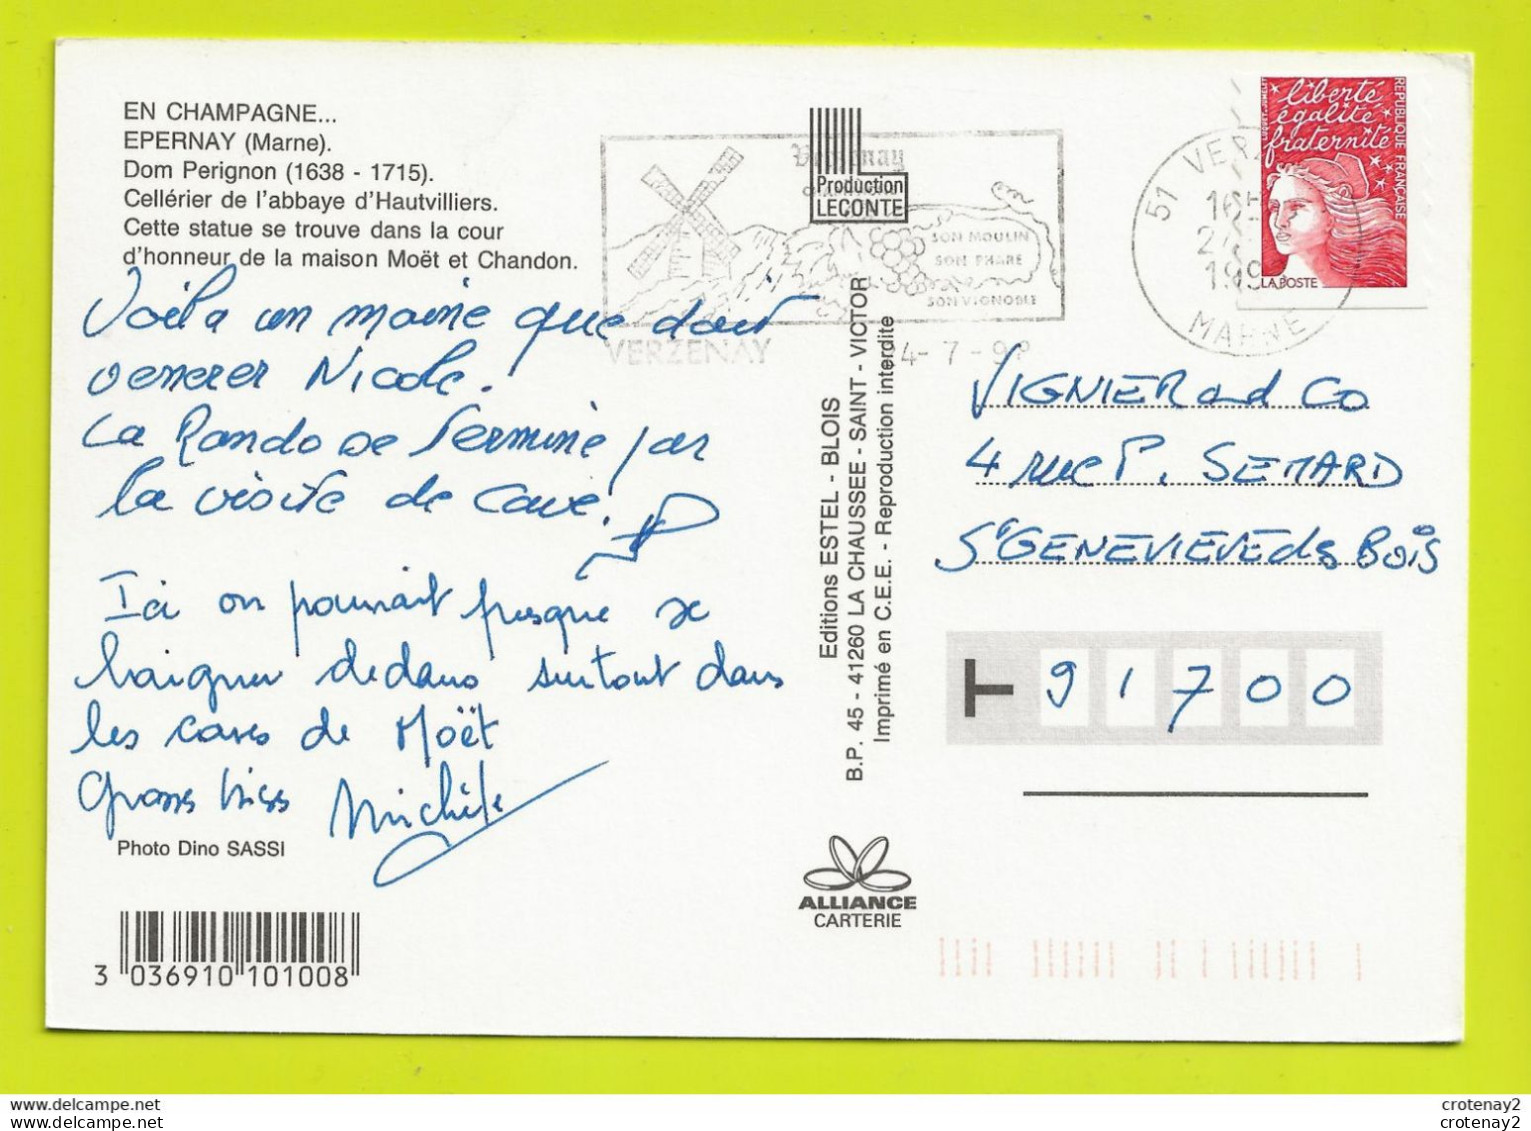 EN CHAMPAGNE...
EPERNAY (Marne).
Dom Perignon (1638 - 1715).
Cellérier de l'abbaye d'Hautvilliers.
Cette statue se trouve dans la cour
d'honneur de la maison Moët et Chandon.
Voila un moine que doit
venerer Nicole.
La Rando se termine par
la visite de cave!
Ici on pourrait presque se
baigner dedans surtout dans
les caves de Moët
Grosses bises Michèle
Photo Dino SASSI
3 036910 101008
Verzenay
Production
LECONTE
SON MOULIN
SON PHARE
SON VIGNOBLE
VERZENAY
4-7-9
Editions ESTEL - BLOIS
B.P. 45 - 41260 LA CHAUSSEE - SAINT - VICTOR
Imprimé en C.E.E. - Reproduction interdite
ALLIANCE
CARTERIE
51 VERZ
16H
2
199
MARNE
liberté
égalité
fraternité
REPUBLIQUE FRANÇAISE
LA POSTE
VIGNIER and Co
4 rue P. SEMARD
St GENEVIEVE des BOIS
T 91700
crotenay2
crotenay2
crotenay2
crotenay2